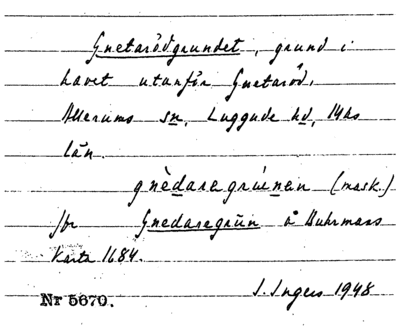 Gnetarödgrundet, grund i
havet utanför Gnetaröd,
Allerums sn, Luggude hd, Mhs
län.
gnèdaregrúnen (mask.)
jfr Gnedaregrün å Buhrmans
karta 1684.
Nr 5670. I. Ingers 1948